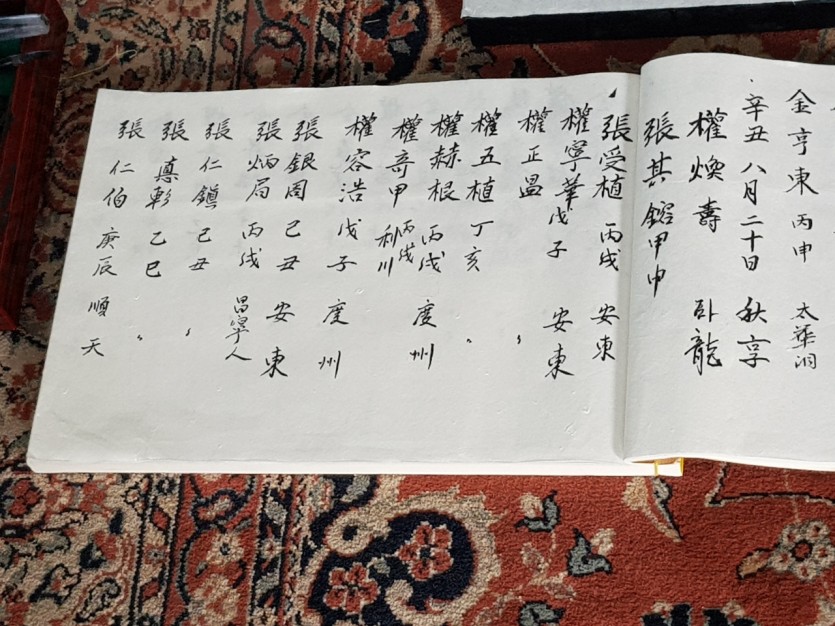 金亨東 丙申 太華洞
辛丑 八月二十日 秋享
權煥壽 臥龍
張其鎔 甲申
張受植 丙戌 安東
權寧華 戊子 安東
權正昷 〃
權五植 丁亥 〃
權赫根 丙戌 度州
權奇甲 丙戌 利川
權容浩 戊子 度州
張銀周 己丑 安東
張炳局 丙戌 昌寧人
張仁鎭 己丑 〃
張彰 乙巳 〃
張仁伯 庚辰 順天